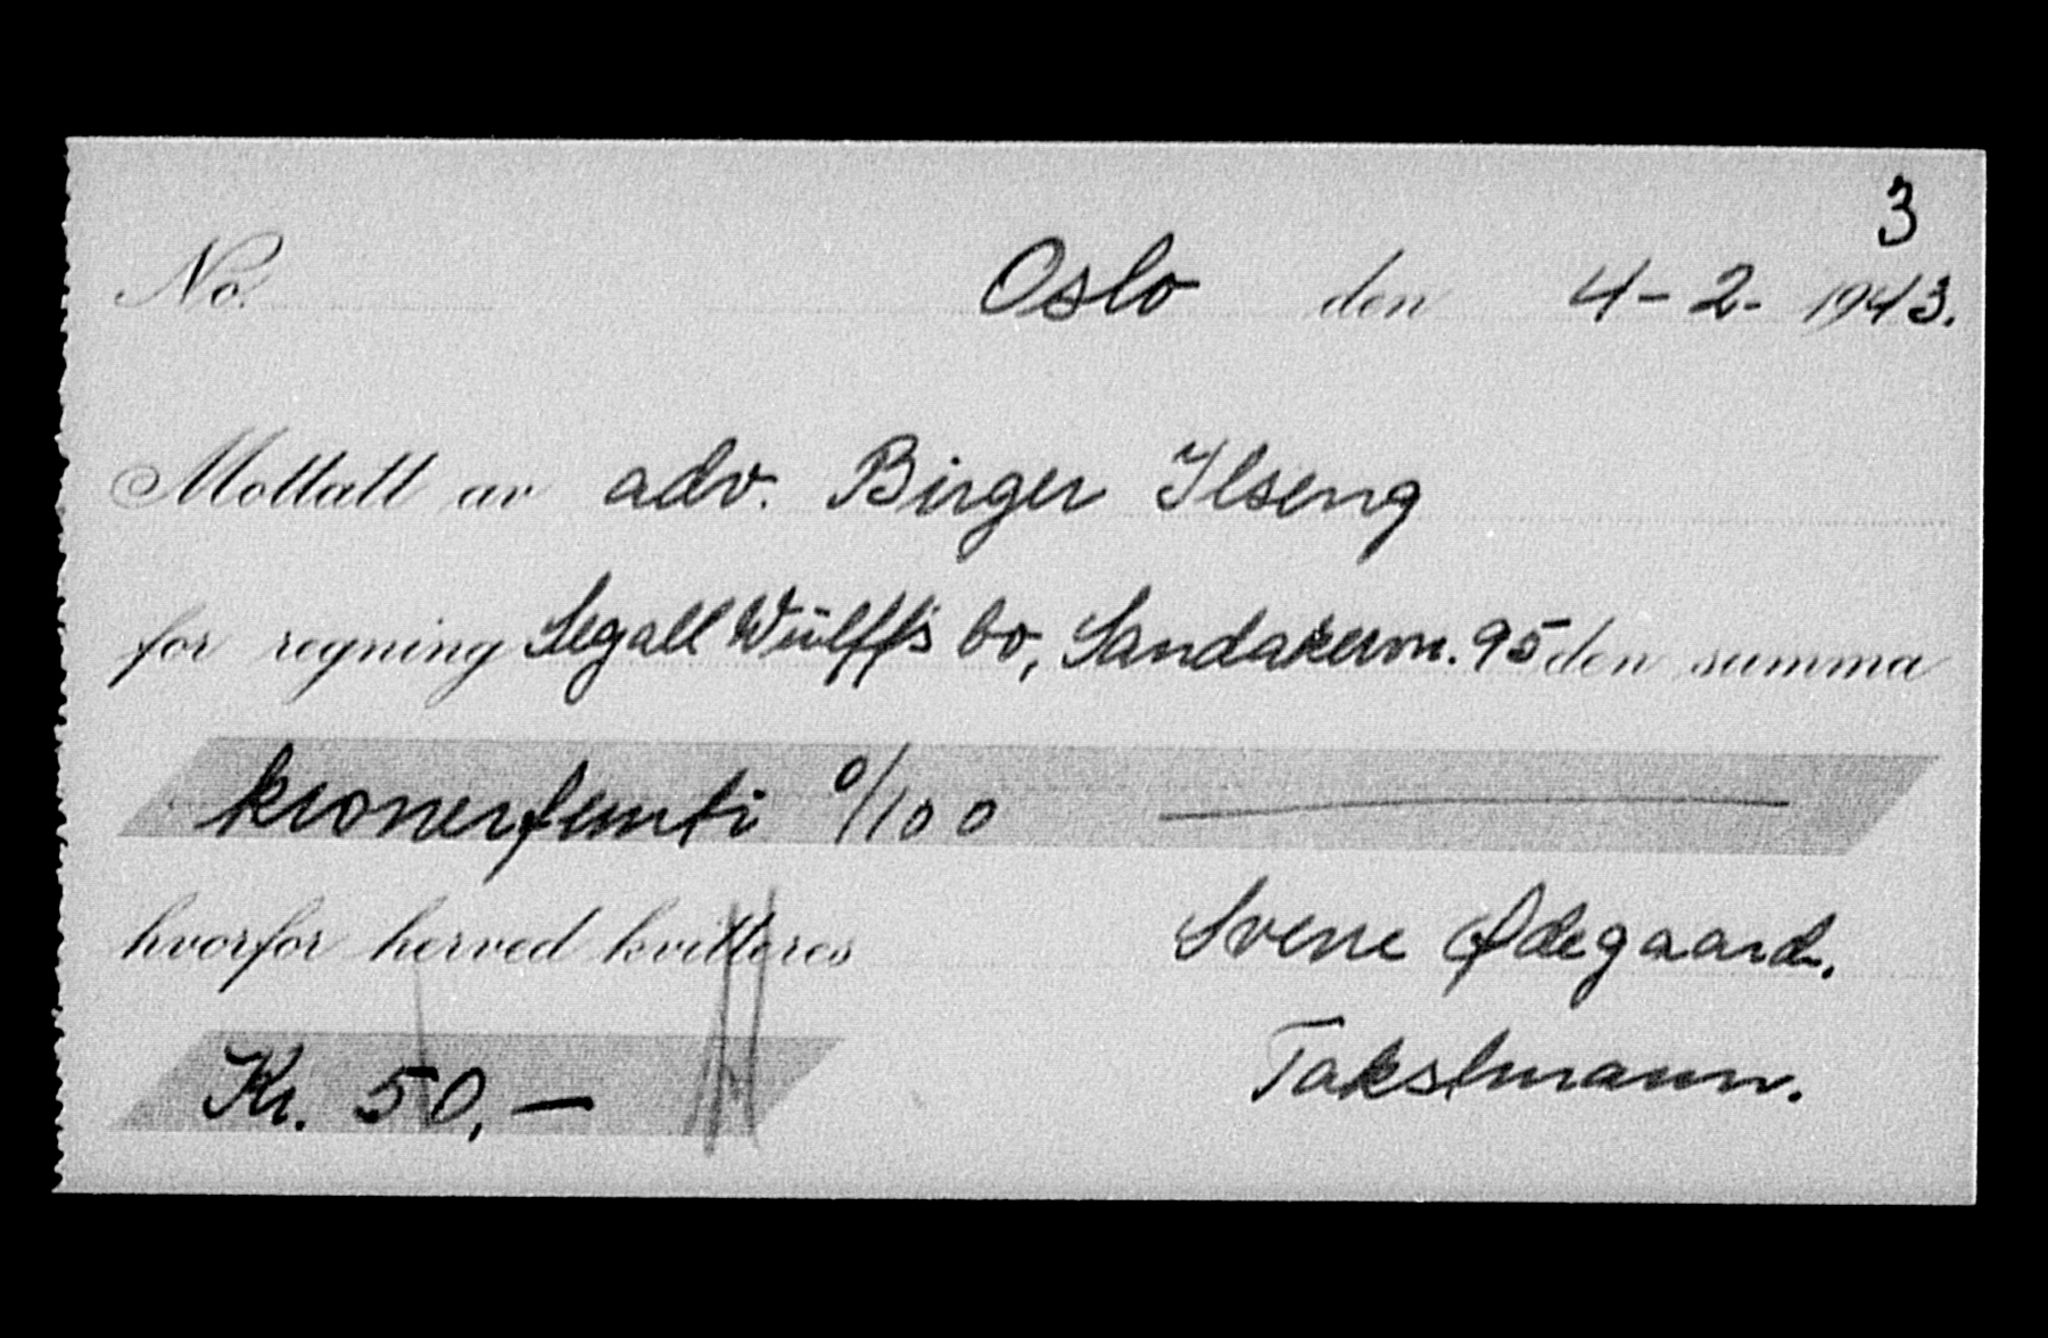 3
No. Oslo den 4-2-1943.
Mottatt av adv. Birger Ilseng
for regning Segall Wulff's bo, Sandakervn. 95 den summa
kronerfemti 0/100
hvorfor herved kvitteres Sverre Ødegaard.
Kr. 50,— Takstmann.